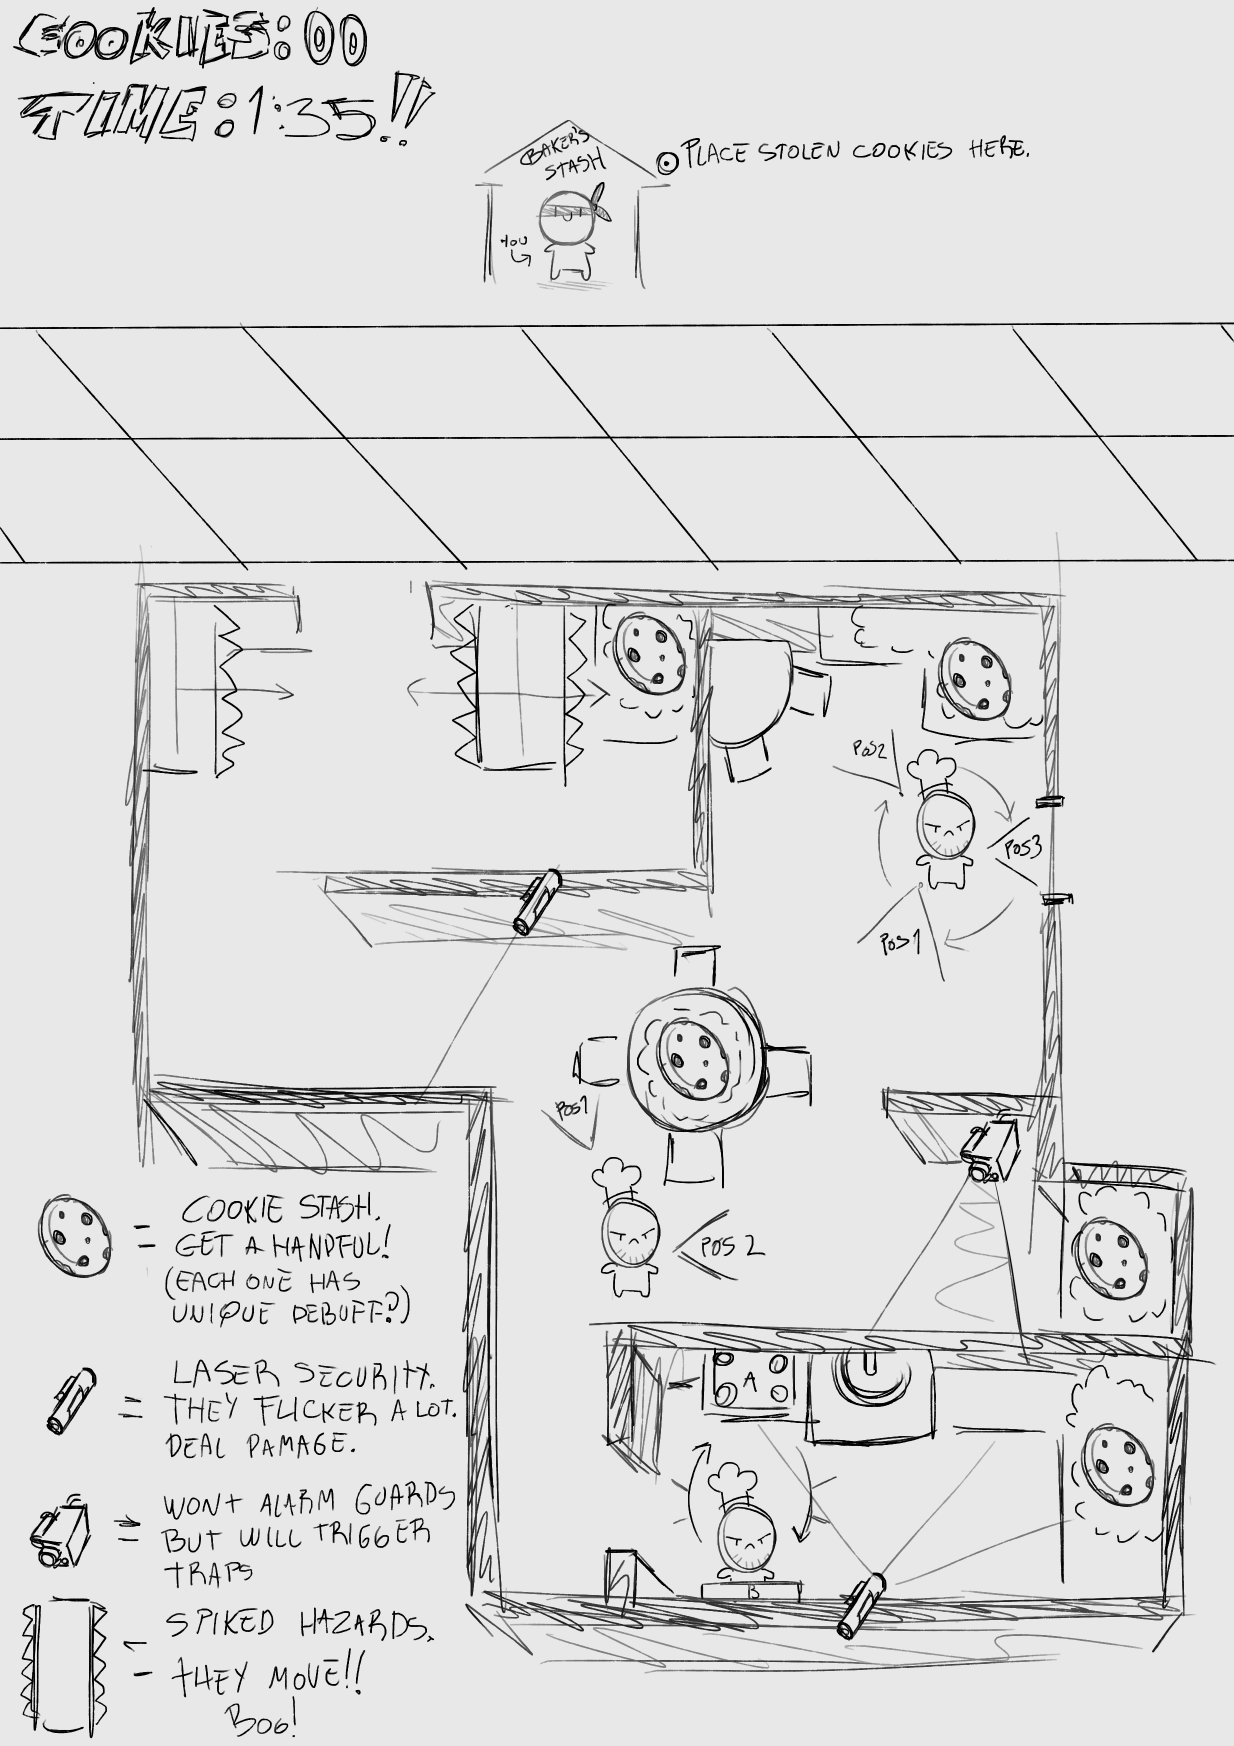 COOKIES:00
TIME:1:35!!
BAKER'S
STASH
PLACE STOLEN COOKIES HERE.
YOU
POS2
POS3
POS1
POS1
POS 2
A
B
COOKIE STASH.
GET A HANDFUL!
(EACH ONE HAS
UNIQUE DEBUFF?)
LASER SECURITY.
THEY FLICKER A LOT.
DEAL DAMAGE.
WONT ALARM GUARDS
BUT WILL TRIGGER
TRAPS
SPIKED HAZARDS.
THEY MOVE!!
BOO!